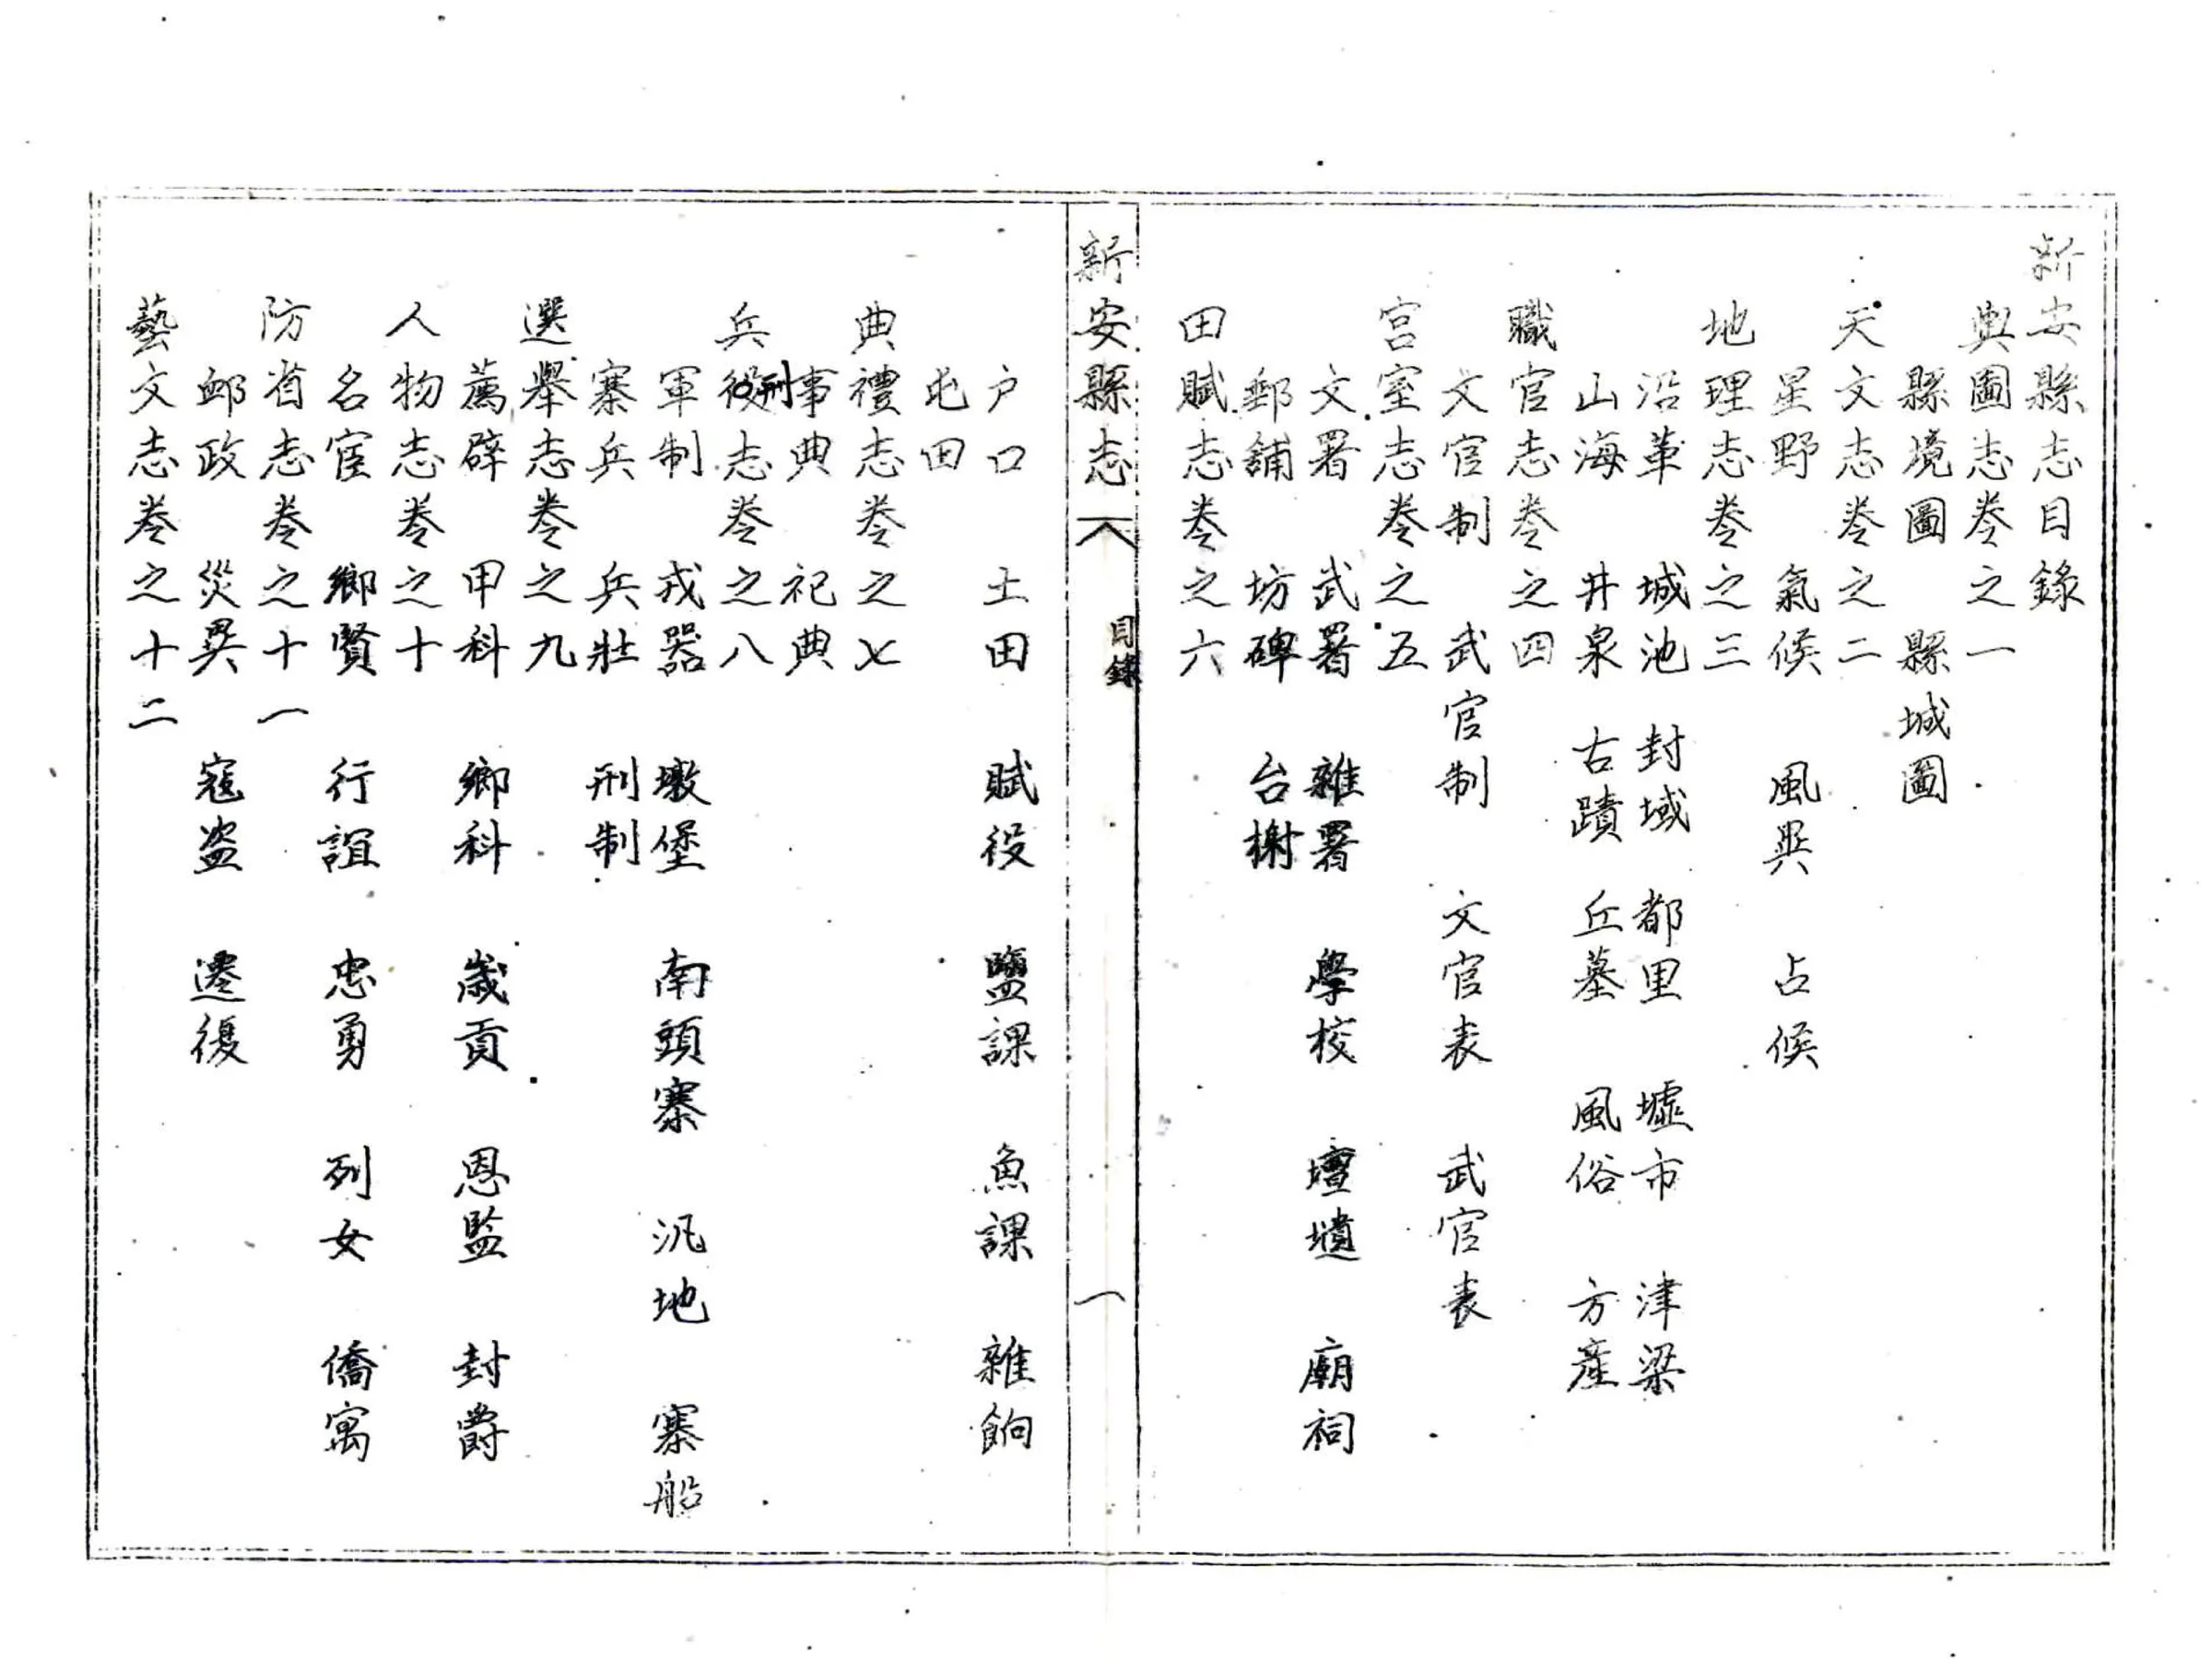 新安縣志目錄
輿圖志卷之一
縣境圖 縣城圖
天文志卷之二
星野 氣候 風異 占候
地理志卷之三
沿革 城池 封域 都里 墟市 津梁
山海 井泉 古蹟 丘墓 風俗 方產
職官志卷之四
文官制 武官制 文官表 武官表
宮室志卷之五
文署 武署 雜署 學校 壇壝 廟祠
郵舖 坊碑 台榭
田賦志卷之六
新安縣志 目錄 一
户口 土田 賦役 鹽課 魚課 雜餉
屯田
典禮志卷之七
事典 祀典
兵刑志卷之八
軍制 戎器 墩堡 南頭寨 汛地 寨船
寨兵 兵壯 刑制
選舉志卷之九
薦辟 甲科 鄉科 歲貢 恩監 封爵
人物志卷之十
名宦 鄉賢 行誼 忠勇 列女 僑寓
防省志卷之十一
邮政 災異 寇盜 遷復
藝文志卷之十二